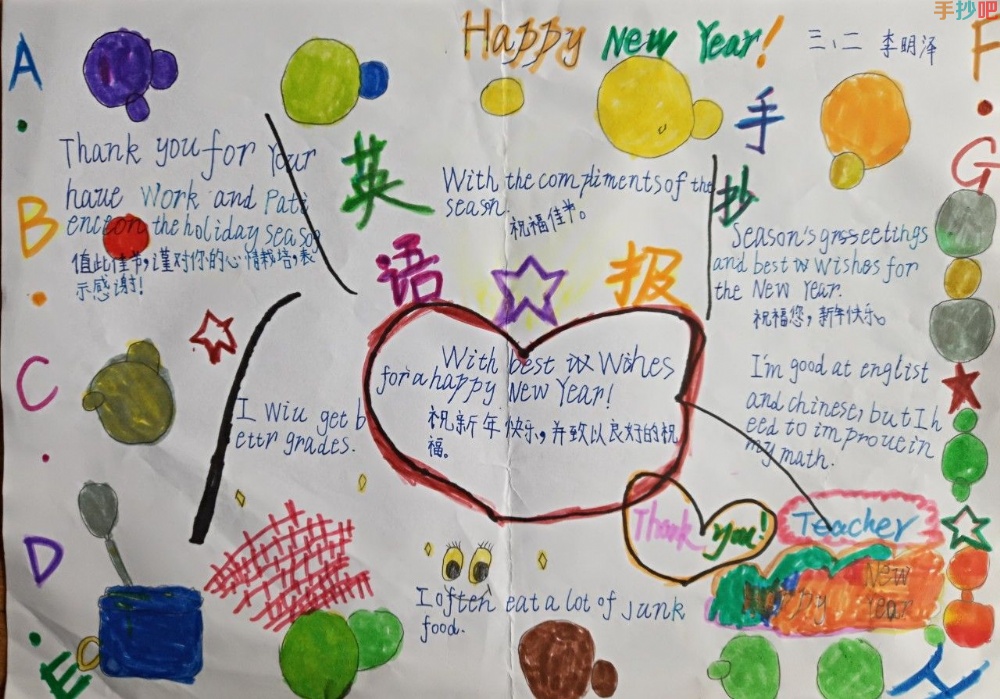 手抄吧
Happy New Year!
三、二 李明泽
A
B
C
D
E
F
G
英
语
手
抄
报
Thank you for Your
haue Work and Pati
enceon the holiday seaso
值此佳节,谨对你的心情栽培,表
示感谢!
With the compliments of the
seasn.
祝福佳节。
Season's grsseetings
and best w Wishes for
the New Year.
祝福您,新年快乐。
With best in Wihes
for a happy New Year!
祝新年快乐,并致以良好的祝
福。
I Wiu get b
ettr grades.
I'm good at englist
and chinese, but I h
eed to improuein
my math.
Thank you!
Teacher
Happy New
Year
I often eat a lot of Junk
food.